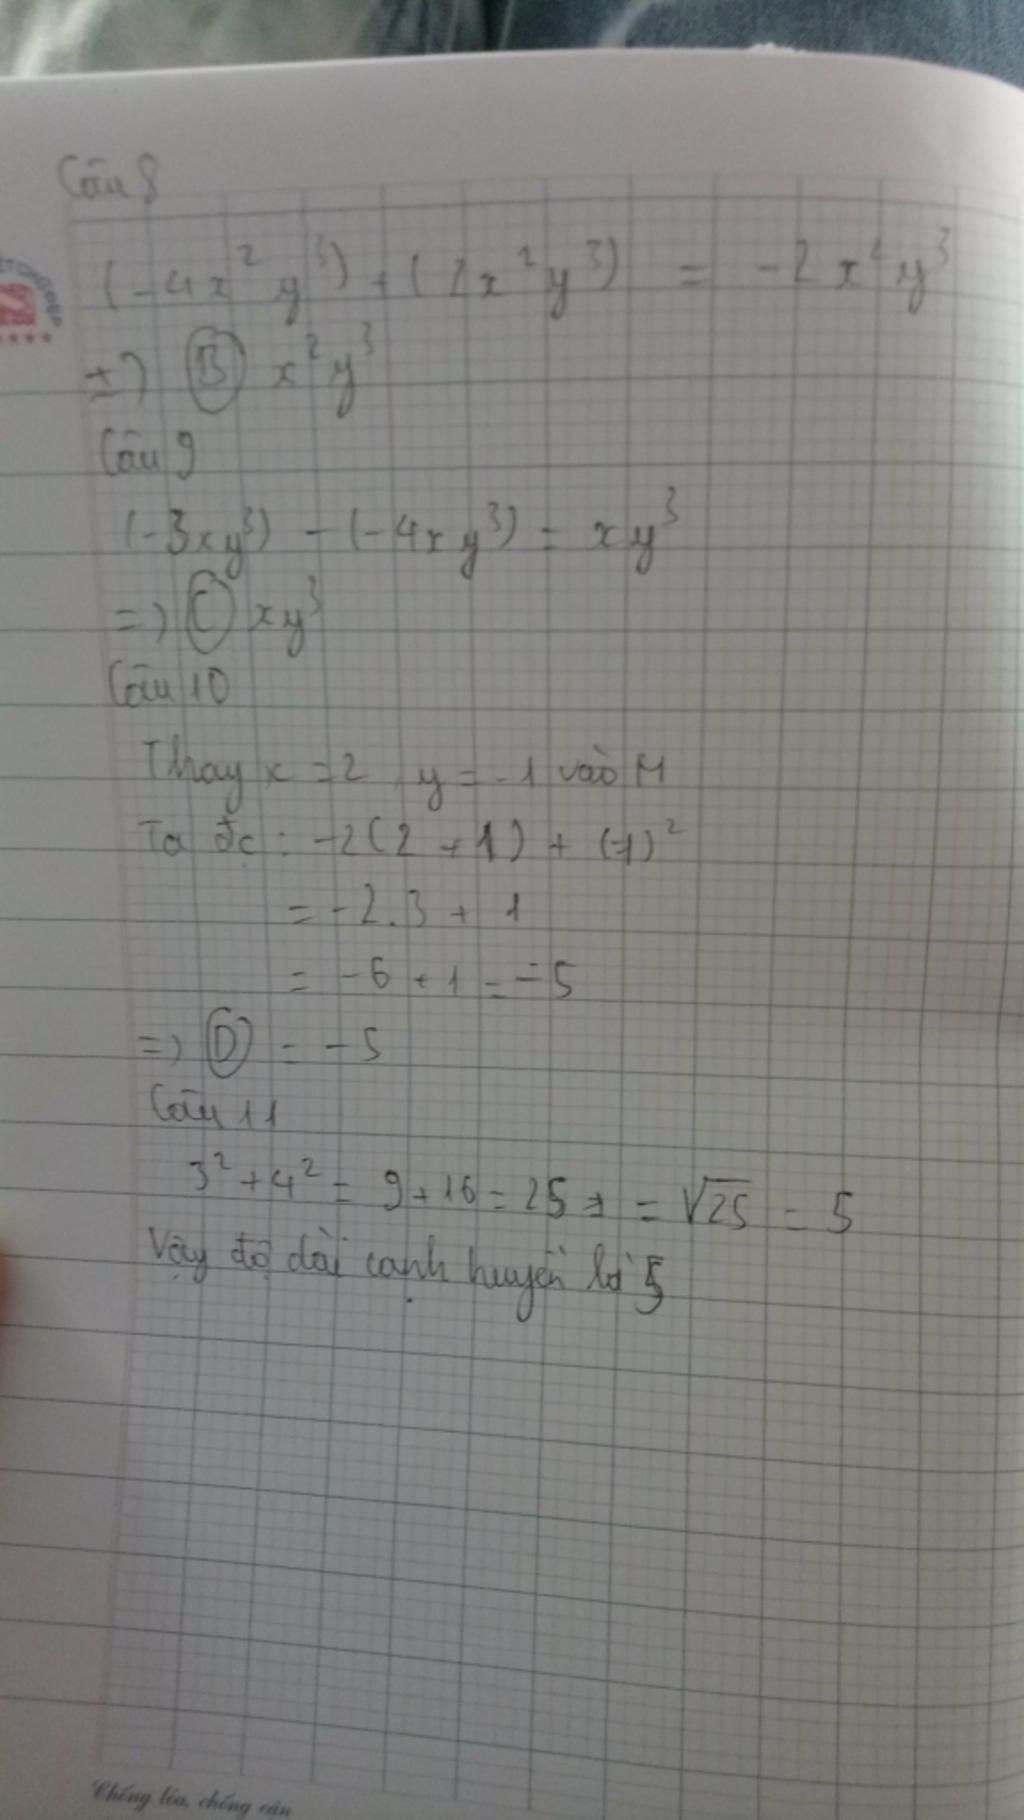 Câu 8
(-4x²y³) + (2x²y³) = -2x²y³
=> B x²y³
Câu 9
(-3xy³) - (-4xy³) = xy³
=> C xy³
Câu 10
Thay x = 2 y = -1 vào M
Ta đc : -2(2 + 1) + (-1)²
= -2.3 + 1
= -6 + 1 = -5
=> D = -5
Câu 11
3² + 4² = 9 + 16 = 25 = √25 = 5
Vậy độ dài cạnh huyền là 5
Chống lóa, chống cận